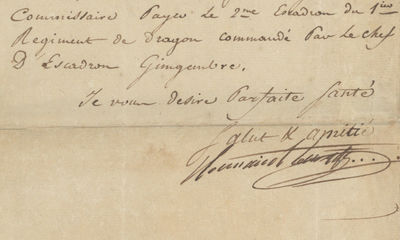 Commissaire Payeu le 2me Escadron du 1ier
Regiment de Dragon commandé Par le chef
D Escadron Gimgembre.
Je vous desire Parfaite Santé
Salut & amitié